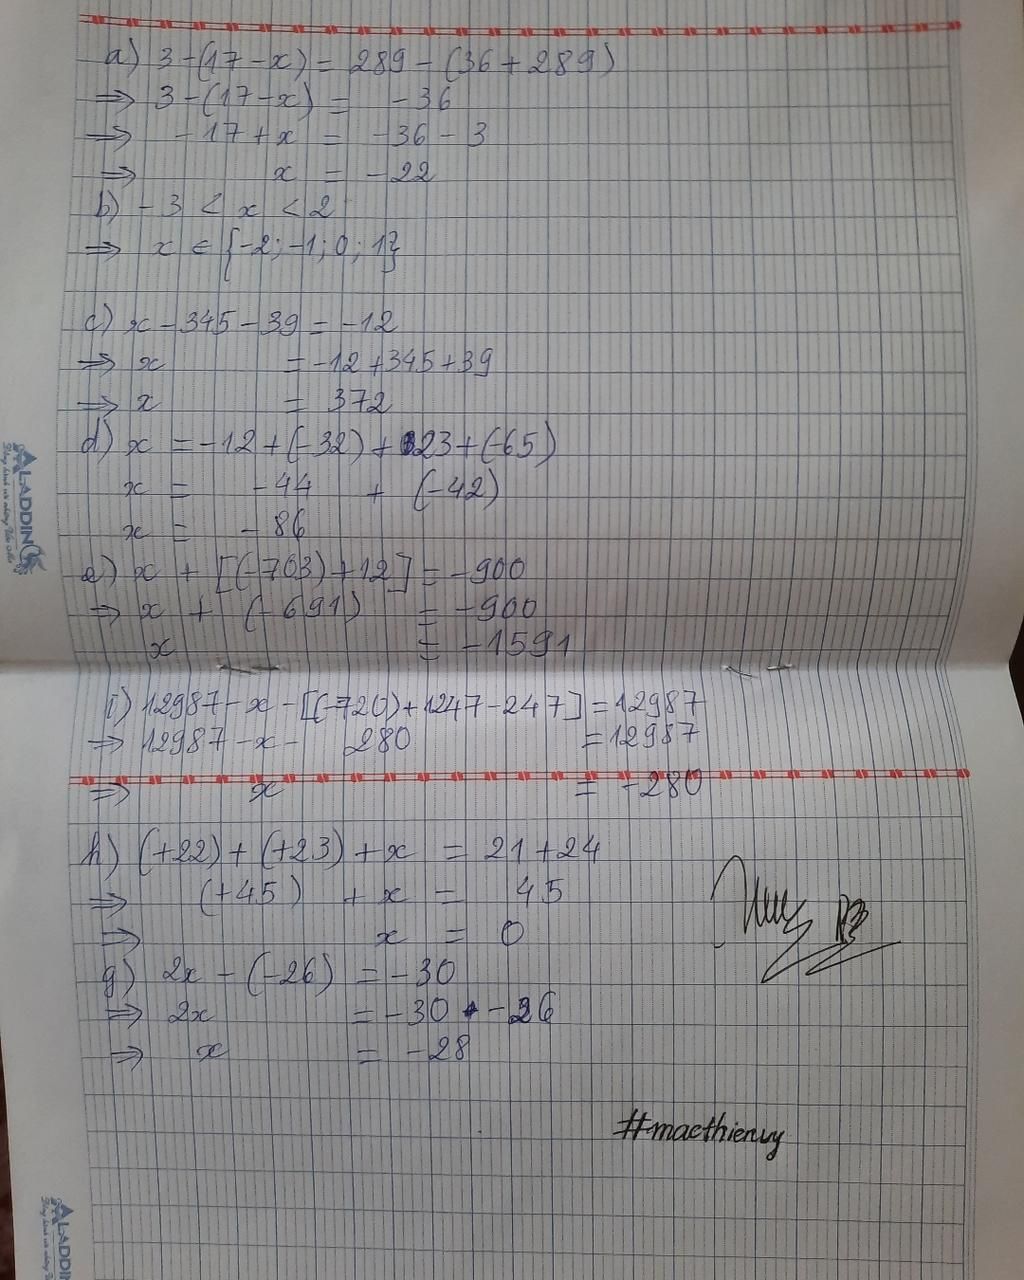 a) 3-(17-x) = 289-(36+289)
⇒ 3-(17-x) = -36
⇒ -17+x = -36-3
⇒ x = -22
b) -3 < x < 2
⇒ x ∈ {-2;-1;0;1}
c) x-345-39 = -12
⇒ x = -12+345+39
⇒ x = 372
d) x = -12+(-32)+23+(-65)
x = -44 + (-42)
x = -86
e) x + [(-703)+12] = -900
⇒ x + (-691) = -900
x = -1591
i) 12987-x-[(-720)+1247-247] = 12987
⇒ 12987-x- 280 = 12987
⇒ x = -280
h) (+22)+(+23)+x = 21+24
⇒ (+45) + x = 45
⇒ x = 0
g) 2x-(-26) = -30
⇒ 2x = -30 - 26
⇒ x = -28
#macthienvy
ALADDIN
ALADDIN